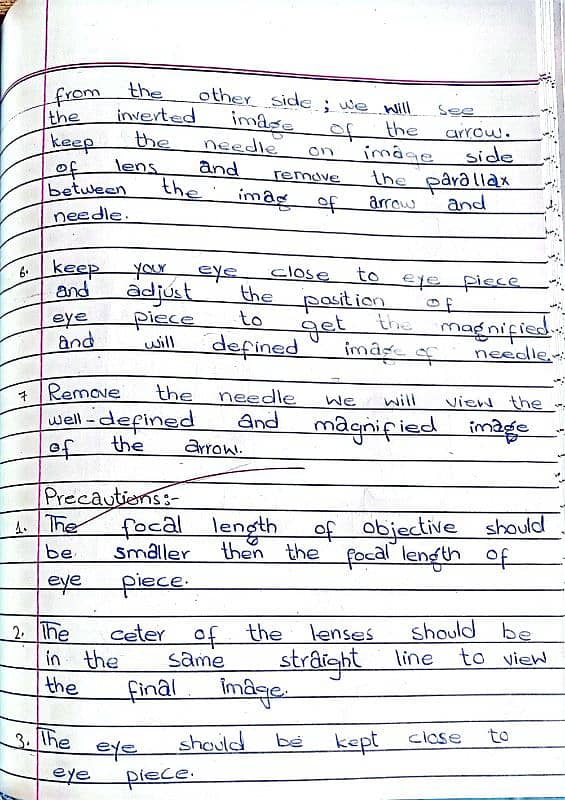 from the other side ; we will see
the inverted image of the arrow.
keep the needle on image side
of lens and remove the parallax
between the imag of arrow and
needle.
6. keep your eye close to eye piece
and adjust the position of
eye piece to get the magnified
and will defined image of needle.
7 Remove the needle we will view the
well-defined and magnified image
of the arrow.
Precautions:-
1. The focal length of objective should
be smaller then the focal length of
eye piece.
2. The ceter of the lenses should be
in the same straight line to view
the final image.
3. The eye should be kept close to
eye piece.